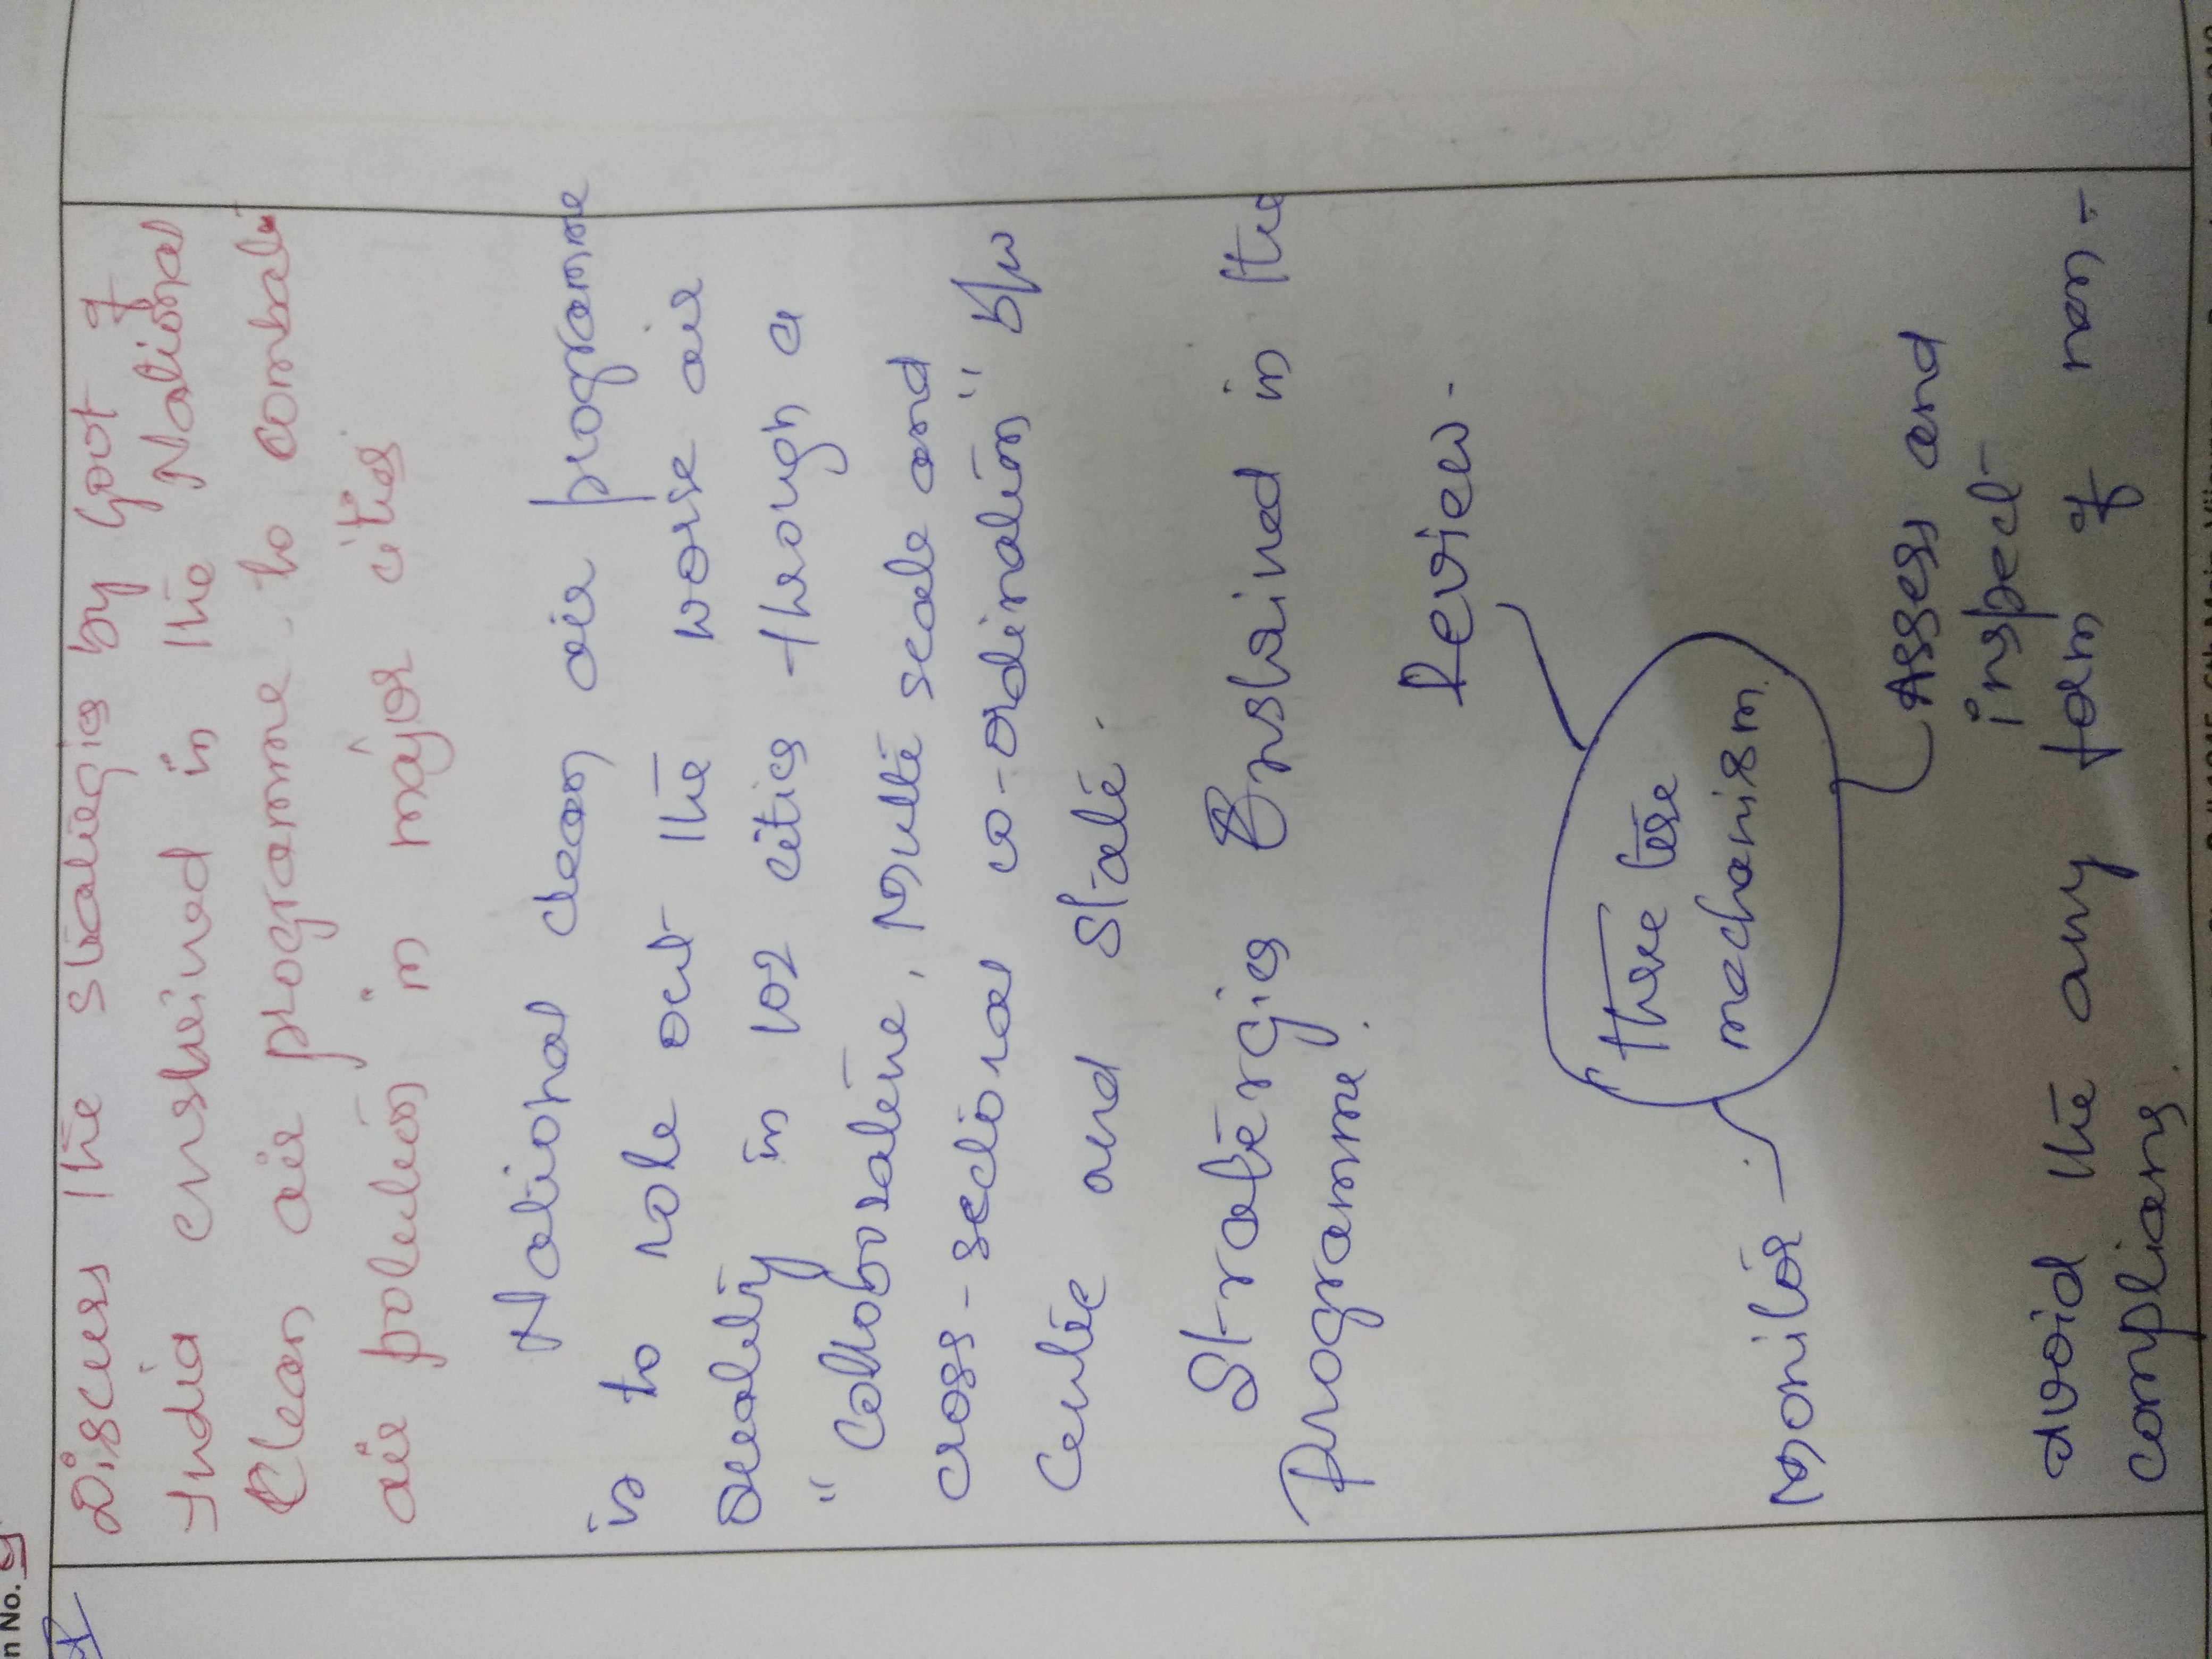 n No. 9
Discuss the strategies by Govt of
India enshrined in the National
Clean air programme to combat
air polution in major cities
National clean air programme
is to role out the worse air
Quality in 102 cities through a
"Colloborative, Multi scale and
cross-sectional co-ordination" b/w
Centre and State.
Stratergies Enshrined in the
programme.
Review.
"three tire
machanism.
Monitor
Assess and
inspect
avoid the any form of non-
complians.